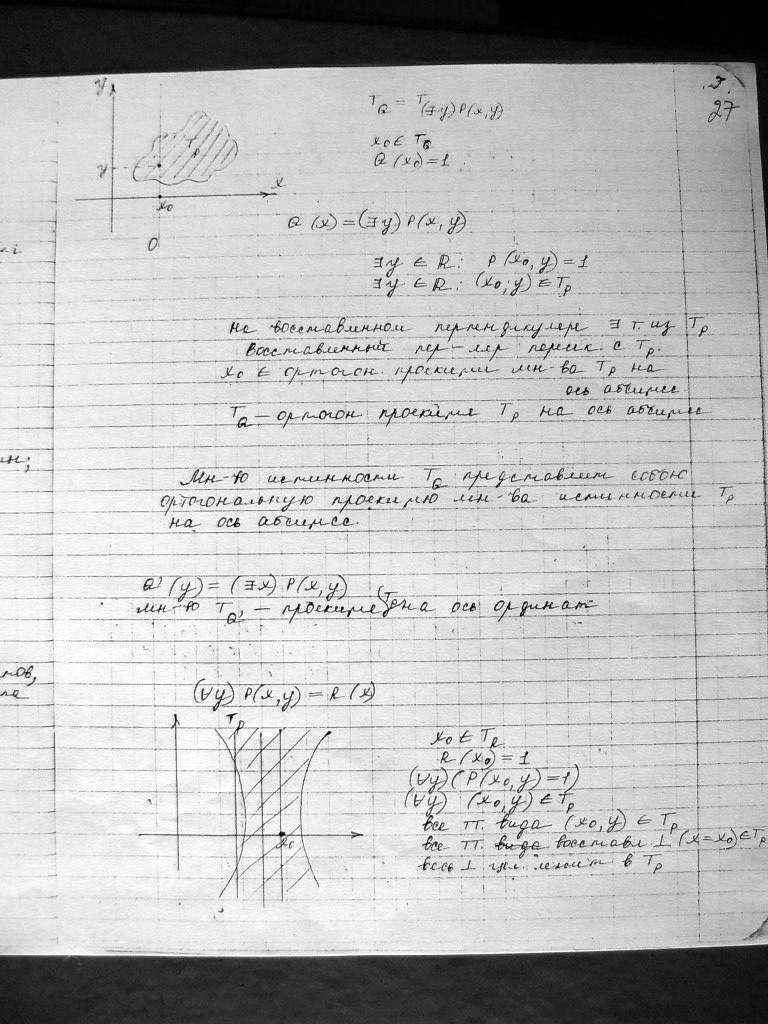 27
y
y
x
x₀
0
T_Q = T_(∃y)P(x,y)
x₀ ∈ T_Q
Q(x₀)=1
Q(x)=(∃y)P(x,y)
∃y ∈ ℝ: P(x₀,y)=1
∃y ∈ ℝ: (x₀,y) ∈ T_P
на восставленном перпендикуляре ∃ т. из T_P
Восставленный пер-ляр пересек. с T_P.
x₀ ∈ ортогон. проекции мн-ва T_P на
ось абсцисс
T_Q – ортогон проекция T_P на ось абсцисс
Мн-во истинности T_Q представляет собою
ортогональную проекцию мн-ва истинности T_P
на ось абсцисс.
Q'(y)=(∃x)P(x,y)
мн-во T_Q' – проекция (T_P) на ось ординат
(∀y)P(x,y)=R(x)
T_P
x₀
x₀ ∈ T_R
R(x₀)=1
(∀y)(P(x₀,y)=1)
(∀y) (x₀,y) ∈ T_P
все тт. вида (x₀,y) ∈ T_P
все тт. вида восставл ⊥ (x=x₀) ∈ T_P
весь ⊥ лежит в T_P